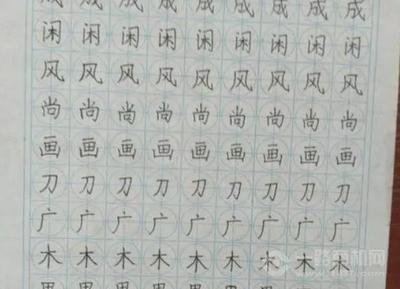 成成成成成成成成成
闲闲闲闲闲闲闲闲闲
风风风风风风风风风
尚尚尚尚尚尚尚尚尚
画画画画画画画画画
刀刀刀刀刀刀刀刀刀
广广广广广广广广广
木木木木木木木木木